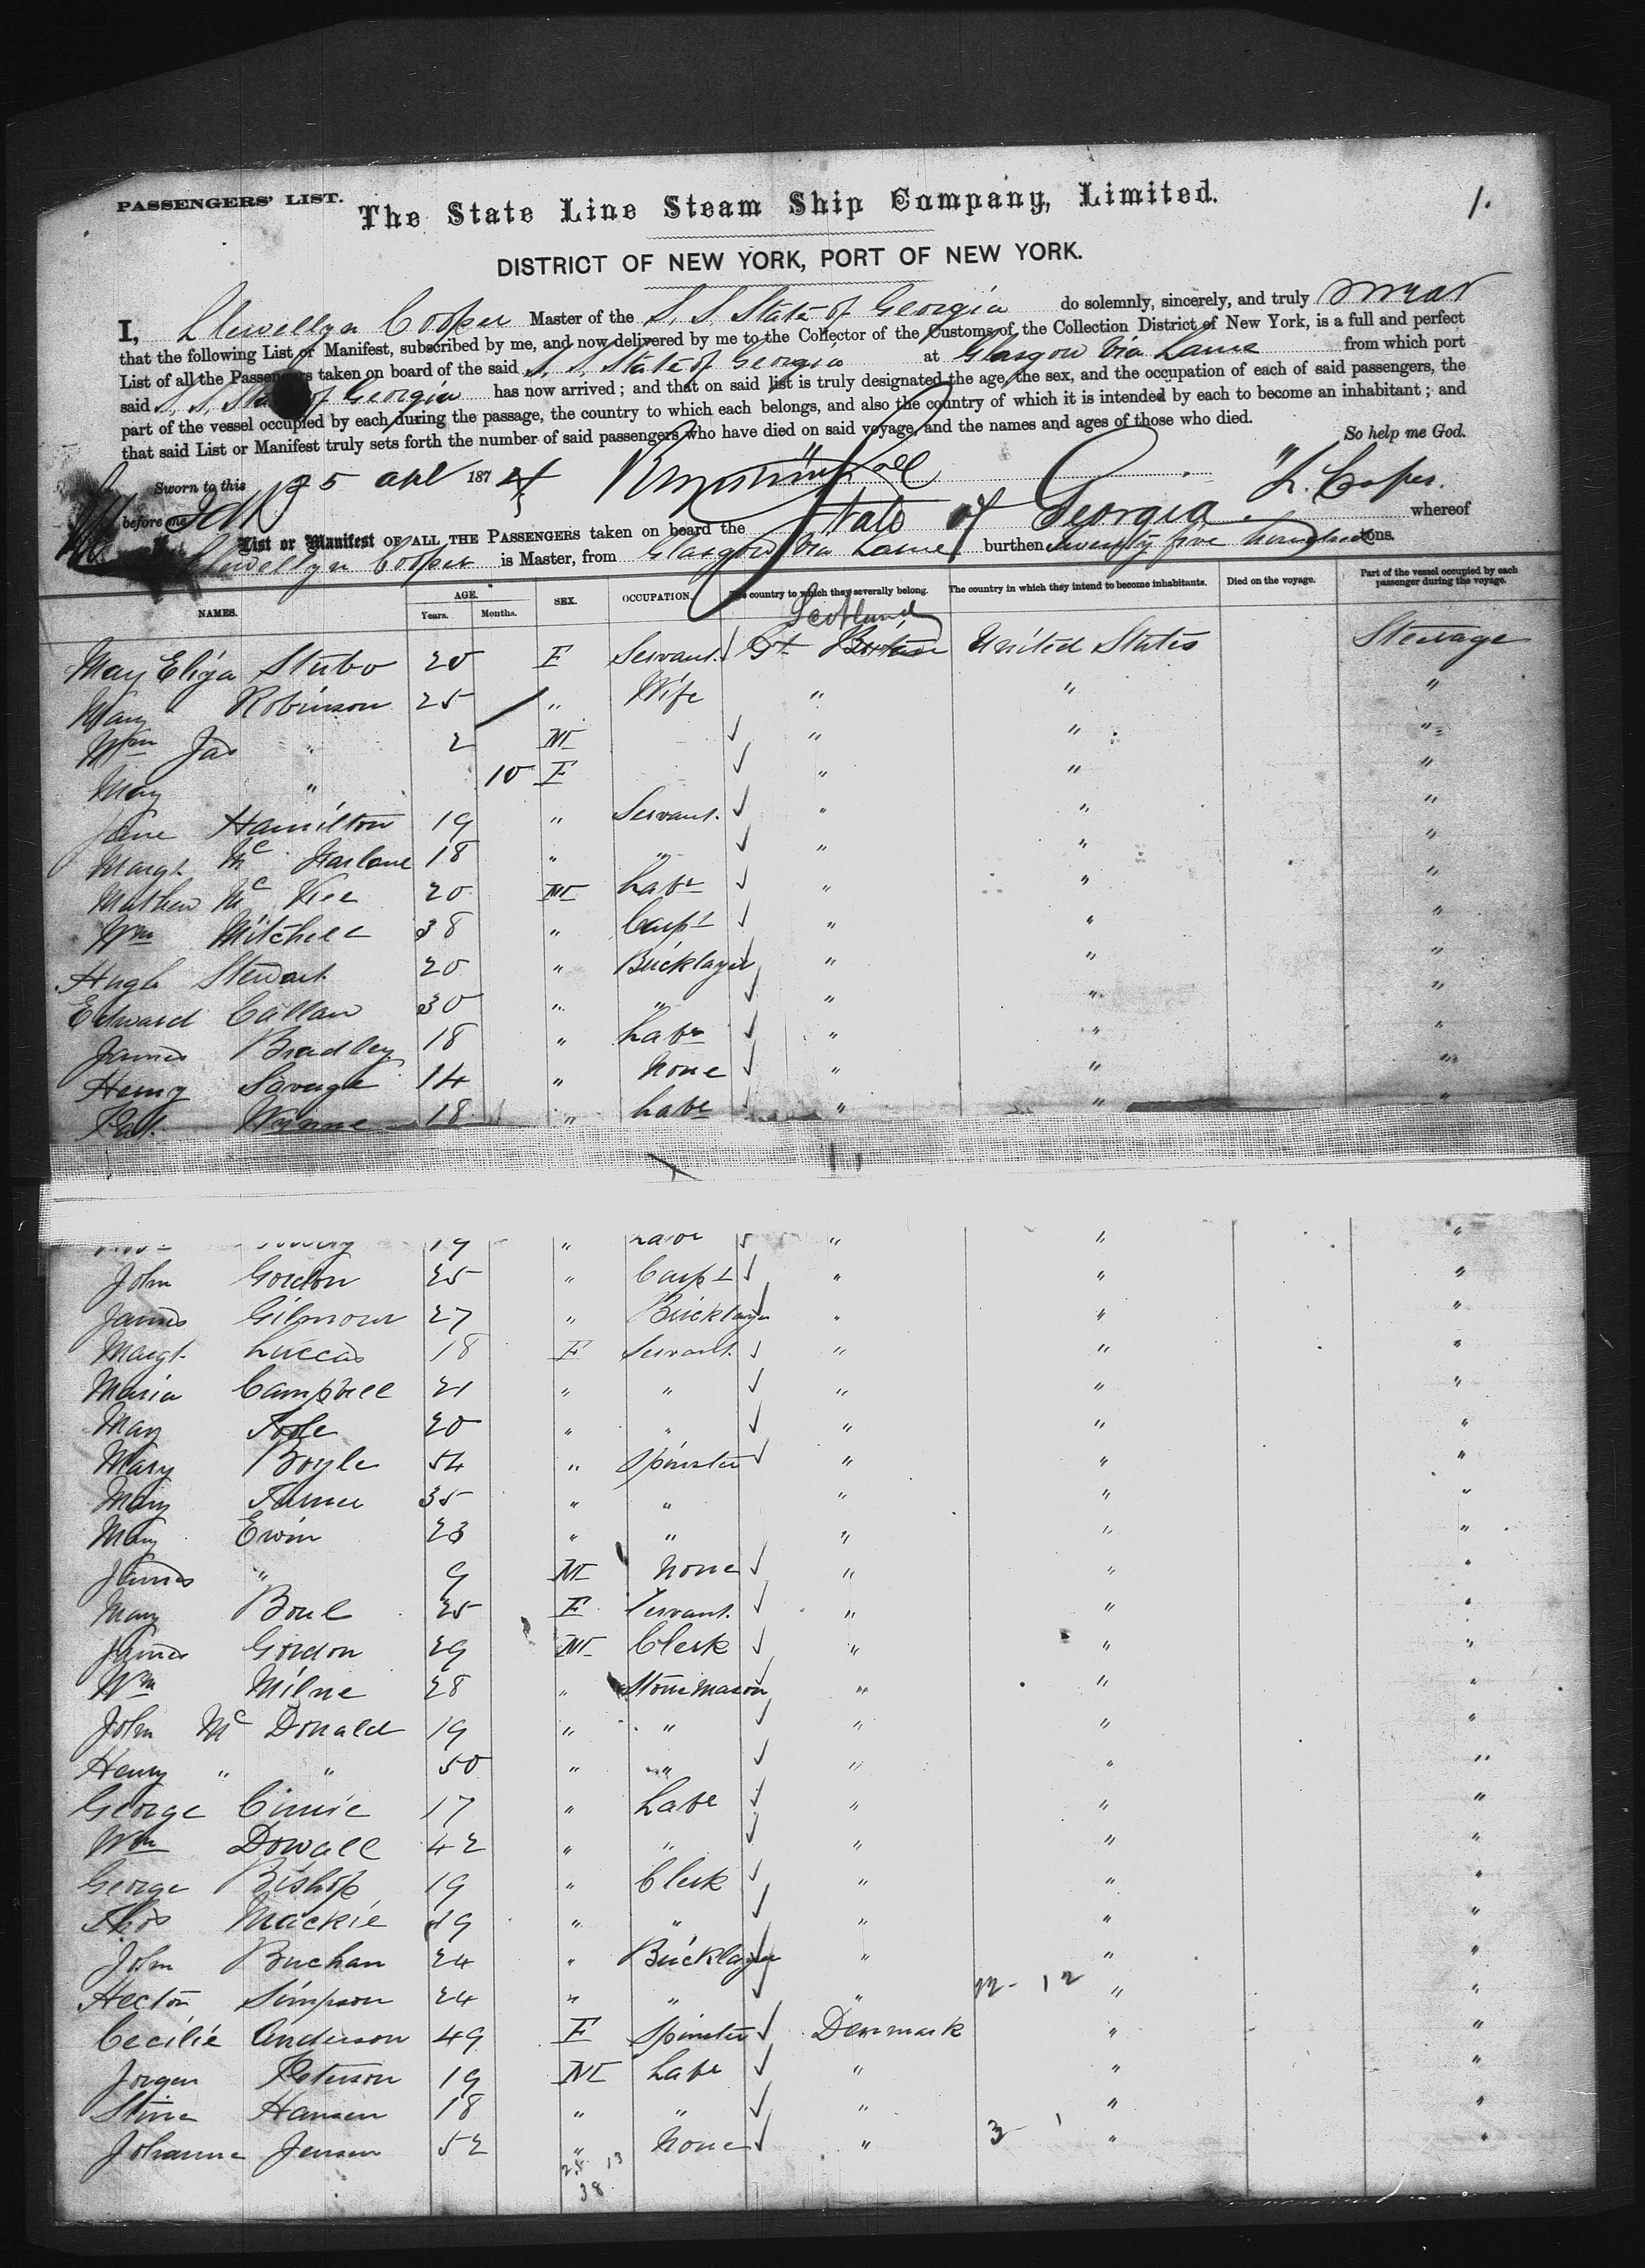 PASSENGERS' LIST.
The State Line Steam Ship Company, Limited.
1.
DISTRICT OF NEW YORK, PORT OF NEW YORK.
I, Llewellyn Cooper Master of the S. S. State of Georgia do solemnly, sincerely, and truly swear
that the following List or Manifest, subscribed by me, and now delivered by me to the Collector of the Customs of the Collection District of New York, is a full and perfect
List of all the Passengers taken on board of the said S. S. State of Georgia at Glasgow via Larne from which port
said S. S. State of Georgia has now arrived; and that on said list is truly designated the age, the sex, and the occupation of each of said passengers, the
part of the vessel occupied by each during the passage, the country to which each belongs, and also the country of which it is intended by each to become an inhabitant; and
that said List or Manifest truly sets forth the number of said passengers who have died on said voyage, and the names and ages of those who died.
So help me God.
Sworn to this 25 apl 1874
L. Cooper.
before me
List or Manifest OF ALL THE PASSENGERS taken on board the State of Georgia whereof
Llewellyn Cooper is Master, from Glasgow via Larne burthen twenty five hundred tons.
NAMES. AGE. Years. Months. SEX. OCCUPATION. The country to which they severally belong. The country in which they intend to become inhabitants. Died on the voyage. Part of the vessel occupied by each passenger during the voyage.
Scotland
May Eliza Stubo 20 F Servant. Gt Britain United States Steerage
Mary Robinson 25 " Wife " " "
Wm Jas " 2 M " " "
May " 10 F " " "
Jane Hamilton 19 " Servant. " " "
Margt. Mc Farlane 18 " " " " "
Mathew Mc Kee 20 M Labr " " "
Wm Mitchell 38 " Carpt " " "
Hugh Stewart 20 " Bricklayer " " "
Edward Callan 30 " " " " "
James Bradley 18 " Labr " " "
Henry Savage 14 " None " " "
Pat. Wynne 18 " Labr " " "
19 " Labr " " "
John Gordon 25 " Carpt " " "
James Gilmour 27 " Bricklayer " " "
Margt. Luccas 18 F Servant. " " "
Maria Campbell 21 " " " " "
May Tole 20 " " " " "
Mary Boyle 54 " Spinster " " "
Mary Turner 35 " " " " "
May Erwin 23 " " " " "
James " 9 M None " " "
Mary Boul 25 F Servant. " " "
James Gordon 29 M Clerk " " "
Wm Milne 28 " Stone Mason " " "
John Mc Donald 19 " " " " "
Henry " " 50 " " " " "
George Cinnie 17 " Labr " " "
Wm Dowall 42 " " " " "
George Bishop 19 " Clerk " " "
Thos Mackie 19 " " " " "
John Buchan 24 " Bricklayer " " "
Hector Simpson 24 " " " 22 - 12 " "
Cecilie Anderson 49 F Spinster Denmark " "
Jorgen Peterson 19 M Labr " " "
Stine Hansen 18 " " " " "
Johanne Jensen 52 " None " 3 - 1 " "
25 13
38